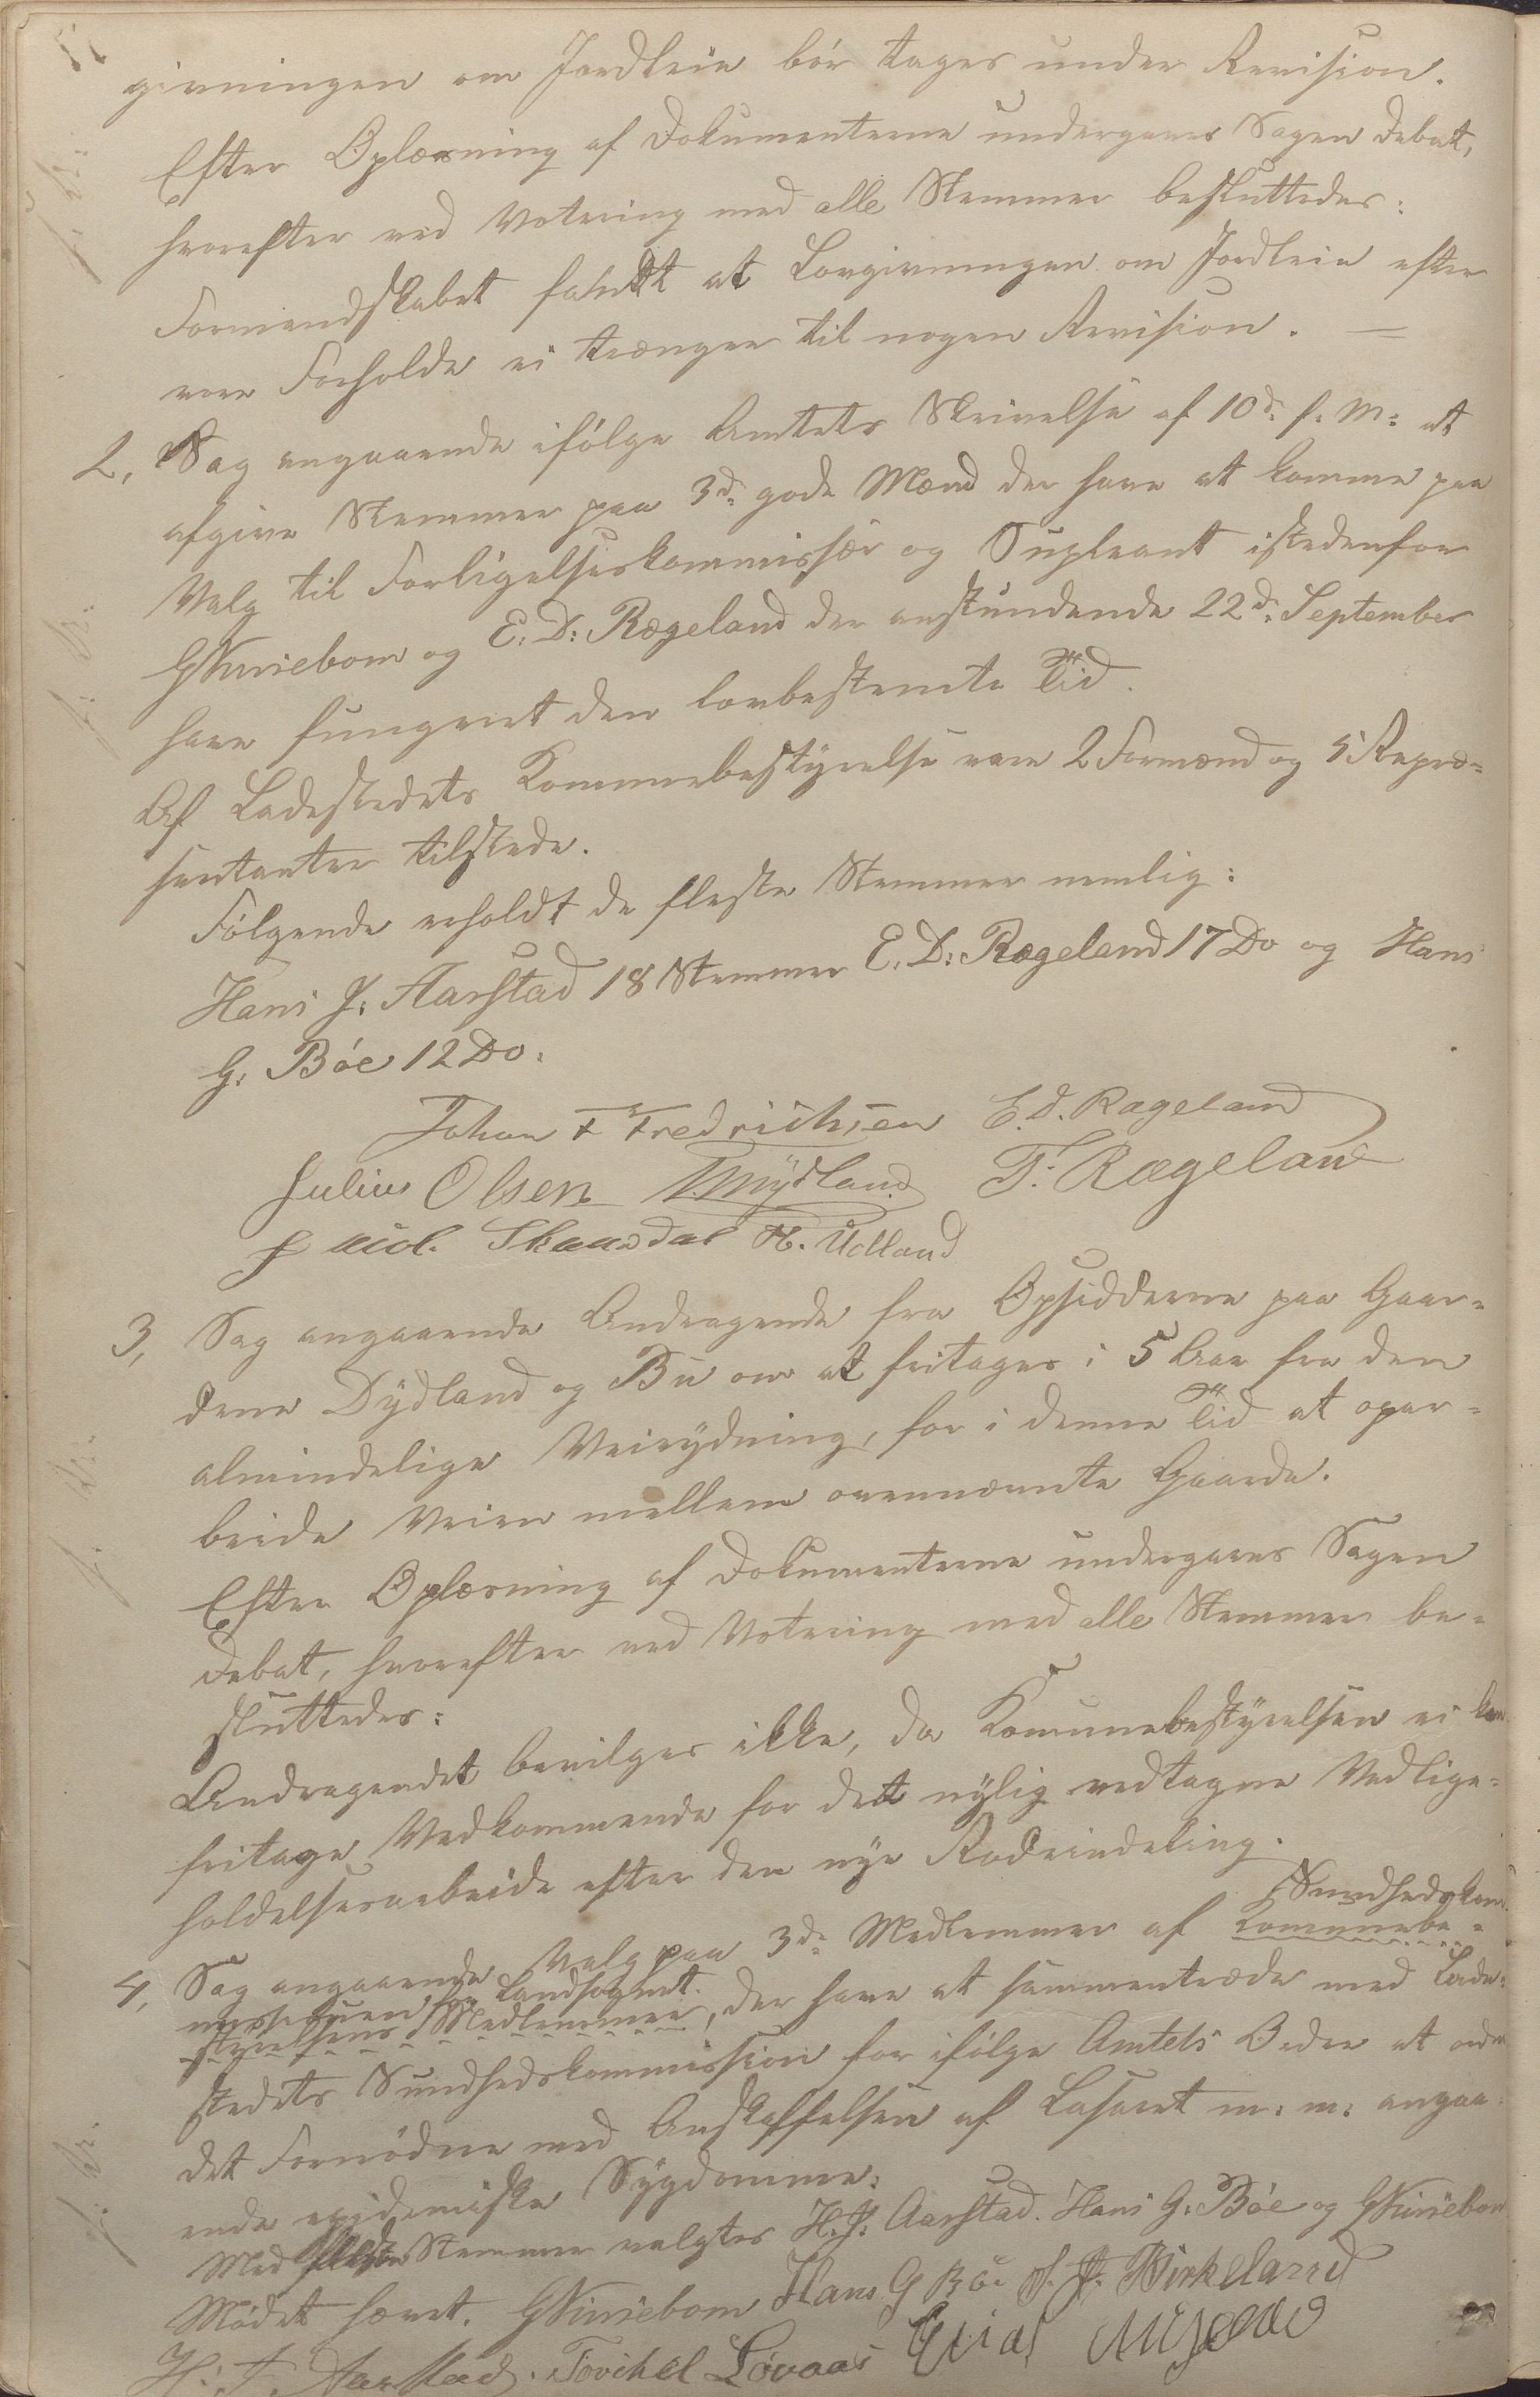 givningen om Jordleie bör tages under Revision.
Efter Oplæsning af Dokumenterne undergaves Sagen Debat,
hvorefter ved Votering med alle Stemmer besluttedes:
Formandskabet fandt at Lovgivningen om Jordleie efter
vore Forholde ei trænger til nogen Revision. —
2, Sag angaaende ifölge Amtets Skrivelse af 10d: f. M: at
afgive Stemmer paa 3d: gode Mænd der have at komme paa
Valg til Forligelseskommissær og Supleant istedenfor
G Kviniebom og E. D: Rægeland der anstundende 22d: September
have fungeret den lovbestemte Tid.
Af Ladestedets Kommunebestyrelse vare 2 Formænd og 5 Repræ=
sentanter tilstede.
Fölgende erholdt de fleste Stemmer nemlig:
Hans J: Aarstad 18 Stemmer E. D: Rægeland 17 Do og Hans
G. Böe 12 Do.
Johan F Fredrichsen E. D. Rægeland
Julius Olsen Mydland T. Rægeland
Skaadal H. Udland
3, Sag angaaende Andragende fra Opsidderne paa Gaar=
dene Dydland og Bu om at fritages i 5 Aar fra den
almindelige Veirydning, for i denne Tid at opar=
beide Veien mellem ovennævnte Gaarde.
Efter Oplæsning af Dokumenterne undergaves Sagen
Debat, hvorefter ved Votering med alle Stemmer be=
sluttedes:
Andragendet bevilges ikke, da Komunebestyrelsen ei kan
fritage Vedkommende for dett nylig vedtagne Vedlige=
holdelsesarbeide efter den nye Rodeinddeling.
Sundhedskom
4, Sag angaaende Valg paa 3d: Medlemmer af Komunebe=
missionen for Landsognet.
styrelsens Medlemmer, der have at sammentræde med Lade=
stedets Sundhedskommission for ifölge Amtets Ordre at ordne
det Fornödne med Anskaffelsen af Lasaret m: m: angaa=
ende epidemiske Sygdomme:
Med fleste Stemmer valgtes H. J. Aarstad. Hans G. Böe og G Kviniebom
Mödet hævet. G Kviniebom Hans G Böe Birkeland
H: J. Aarstad. Torkel Lovaas Elias